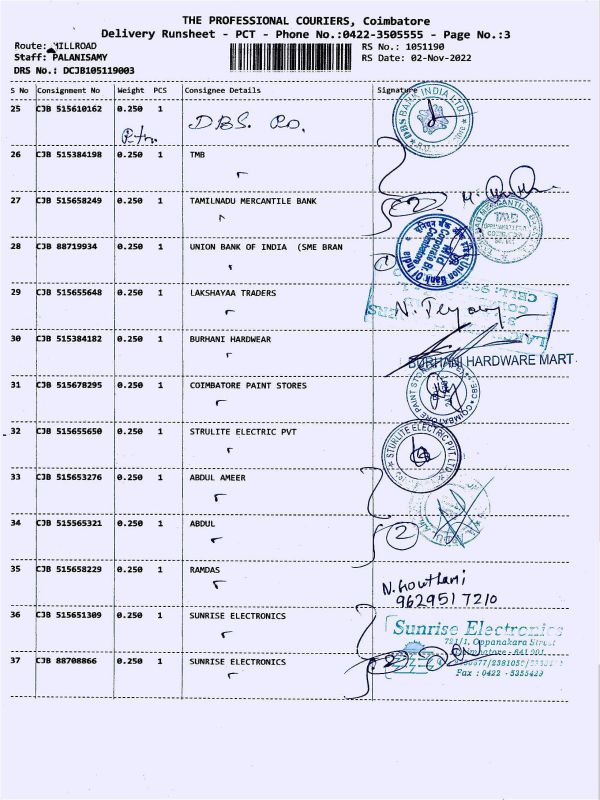 THE PROFESSIONAL COURIERS, Coimbatore
Delivery Runsheet - PCT - Phone No.:0422-3505555 - Page No.:3
Route: MILLROAD
RS No.: 1051190
Staff: PALANISAMY
RS Date: 02-Nov-2022
DRS No.: DCJB105119003
S No Consignment No Weight PCS Consignee Details Signature
25 CJB 515610162 0.250 1 DBS. Co.
DBS BANK INDIA LTD.
26 CJB 515384198 0.250 1 TMB
27 CJB 515658249 0.250 1 TAMILNADU MERCANTILE BANK
2
TMB
28 CJB 88719934 0.250 1 UNION BANK OF INDIA (SME BRAN
Union Bank Of India
Mid Corporate Br.
Coimbatore
29 CJB 515655648 0.250 1 LAKSHAYAA TRADERS
30 CJB 515384182 0.250 1 BURHANI HARDWEAR
BURHANI HARDWARE MART
31 CJB 515678295 0.250 1 COIMBATORE PAINT STORES
COIMBATORE PAINT STORES
32 CJB 515655650 0.250 1 STRULITE ELECTRIC PVT
STURLITE ELECTRIC PVT. LTD.
33 CJB 515653276 0.250 1 ABDUL AMEER
34 CJB 515565321 0.250 1 ABDUL
2
35 CJB 515658229 0.250 1 RAMDAS
N. Gouthami
9629517210
36 CJB 515651309 0.250 1 SUNRISE ELECTRONICS
Sunrise Electronics
721/1, Oppanakara Street
Coimbatore - 641 001.
37 CJB 88708866 0.250 1 SUNRISE ELECTRONICS
2
Fax : 0422 - 5355429